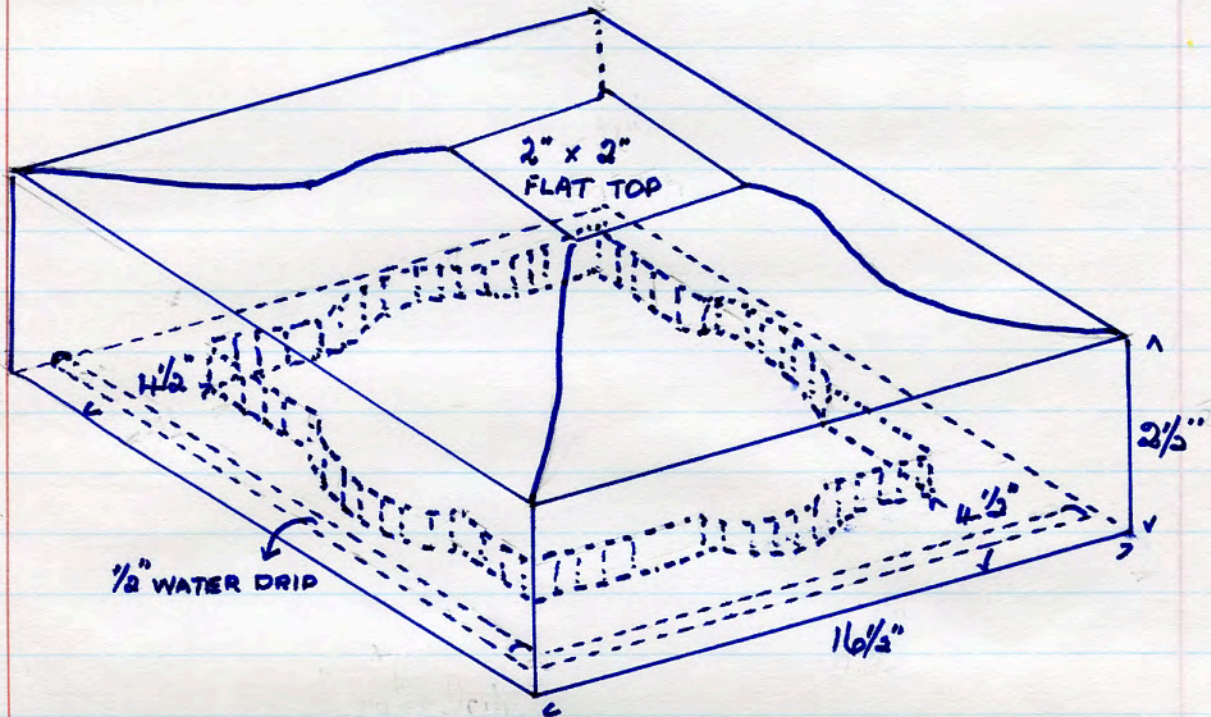 2" x 2"
FLAT TOP
4½"
2½"
4½"
½" WATER DRIP
16½"